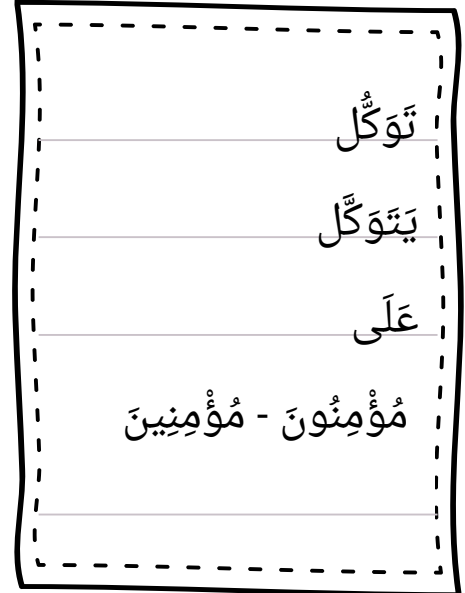 تَوَكُّل
يَتَوَكَّل
عَلَى
مُؤْمِنُونَ - مُؤْمِنِينَ